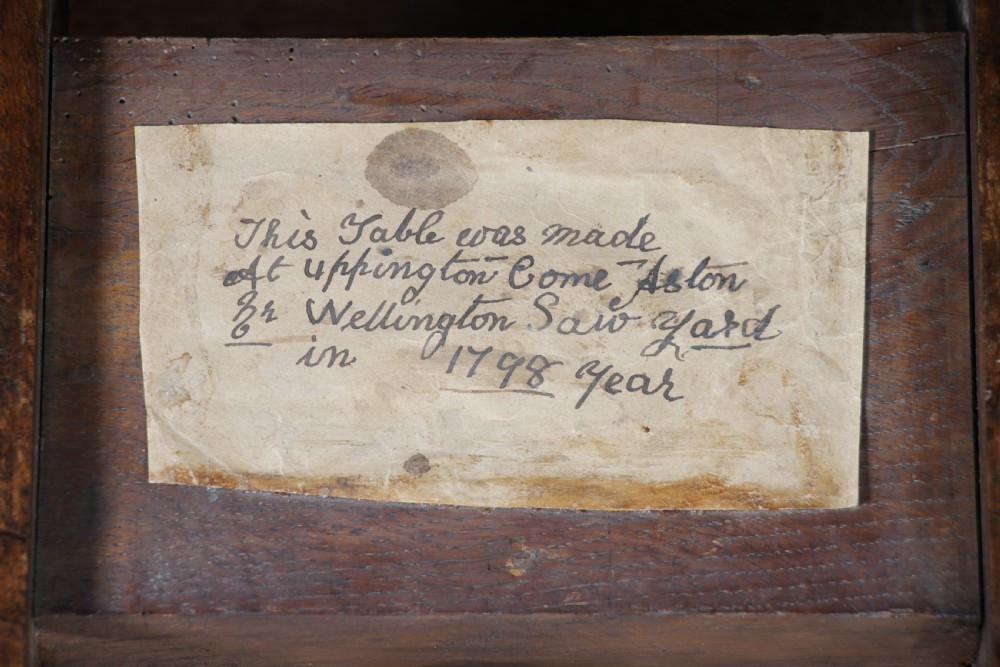 This Table was made
At uppington Come Aston
Wellington Saw Yard
in 1798 Year